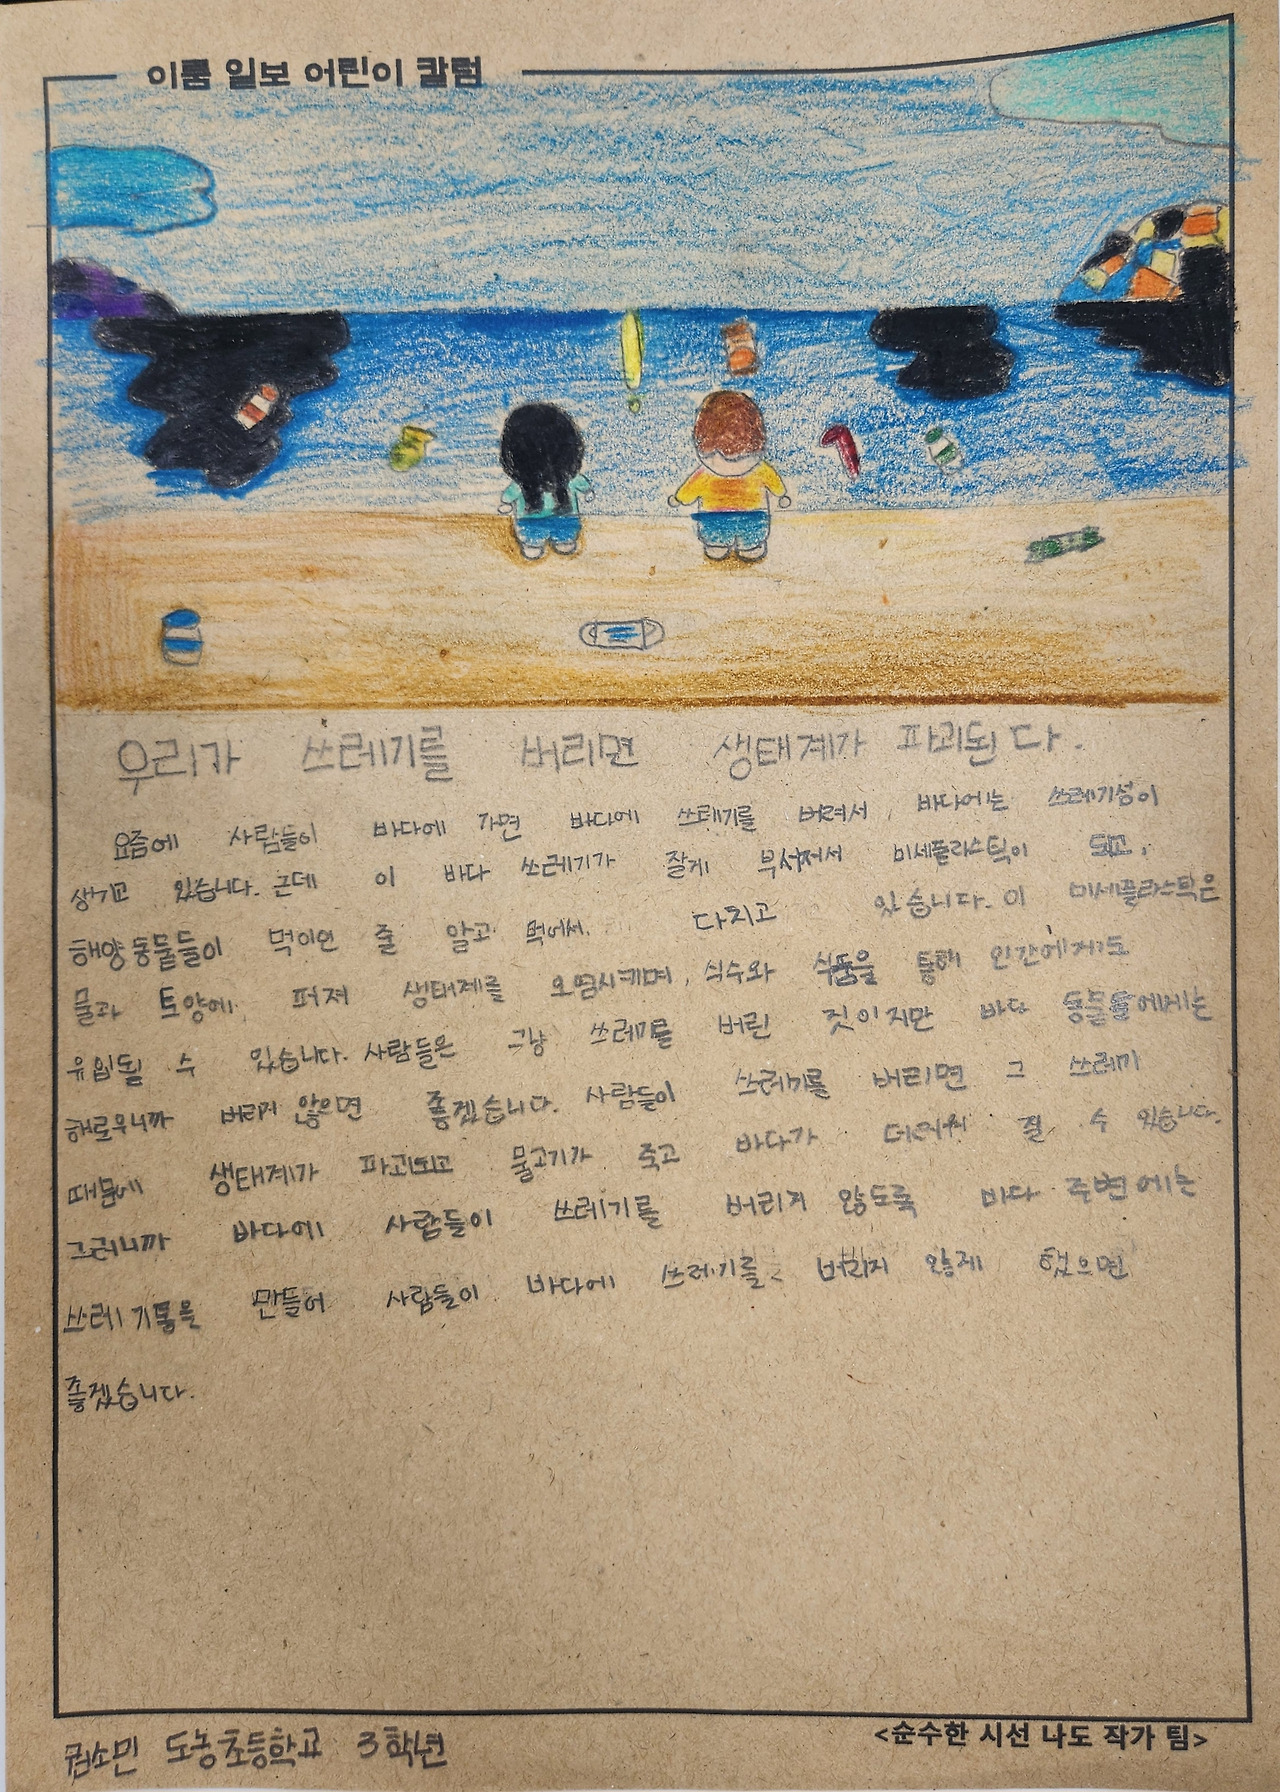 이룸 일보 어린이 칼럼
우리가 쓰레기를 버리면 생태계가 파괴된다.
요즘에 사람들이 바다에 가면 바다에 쓰레기를 버려서 바다에는 쓰레기섬이
생기고 있습니다. 근데 이 바다 쓰레기가 잘게 부서져서 미세플라스틱이 되고,
해양동물들이 먹이인 줄 알고 먹어서. 다치고 있습니다. 이 미세플라스틱은
물과 토양에 퍼져 생태계를 오염시키며, 식수와 식품을 통해 인간에게도
유입될 수 있습니다. 사람들은 그냥 쓰레기를 버린 짓이지만 바다 동물들에게는
해로우니까 버리지 않으면 좋겠습니다. 사람들이 쓰레기를 버리면 그 쓰레기
때문에 생태계가 파괴되고 물고기가 죽고 바다가 더러워 질 수 있습니다.
그러니까 바다에 사람들이 쓰레기를 버리지 않도록 바다 주변에는
쓰레기통을 만들어 사람들이 바다에 쓰레기를 버리지 않게 했으면
좋겠습니다.
권소민 도농초등학교 3학년
<순수한 시선 나도 작가 팀>